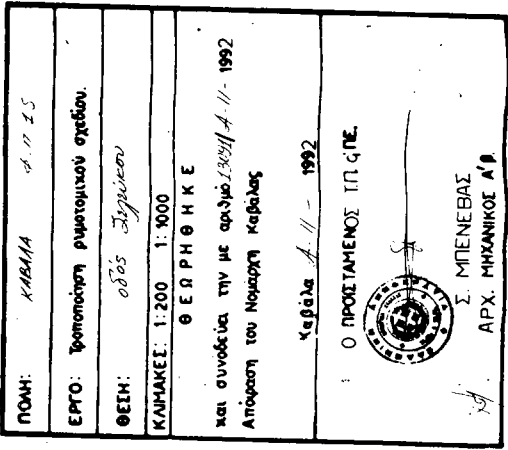 ΠΟΛΗ: ΚΑΒΑΛΑ
ΕΡΓΟ: Τροποποίηση ρυμοτομικού σχεδίου.
ΘΕΣΗ: οδός
ΚΛΙΜΑΚΕΣ: 1:200 1:1000
ΘΕΩΡΗΘΗΚΕ
και συνοδεύει την με αριθμό 4-11-1992
Απόφαση του Νομάρχη Καβάλας
Καβάλα 4-11-1992
Ο ΠΡΟΪΣΤΑΜΕΝΟΣ Τ.Π. & Π.Ε.
Σ. ΜΠΕΝΕΒΑΣ
ΑΡΧ. ΜΗΧΑΝΙΚΟΣ Α'β